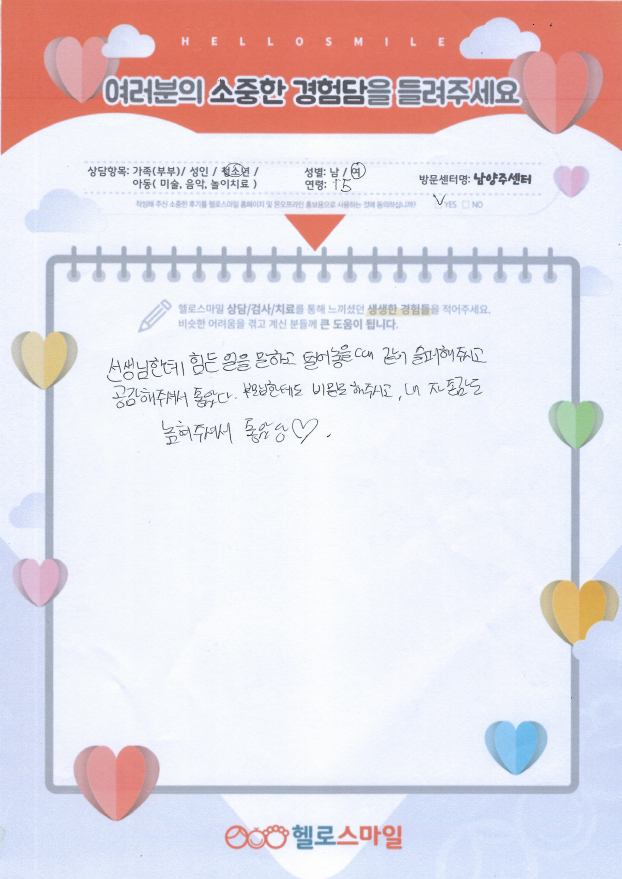 HELLOSMILE
여러분의 소중한 경험담을 들려주세요
상담항목: 가족(부부)/ 성인 / 청소년 /
아동( 미술, 음악, 놀이치료 )
성별: 남 / 여
연령: 15
방문센터명: 남양주센터
작성해 주신 소중한 후기를 헬로스마일 홈페이지 및 온오프라인 홍보용으로 사용하는 것에 동의하십니까? ✓YES □ NO
헬로스마일 상담/검사/치료를 통해 느끼셨던 생생한 경험들을 적어주세요.
비슷한 어려움을 겪고 계신 분들께 큰 도움이 됩니다.
선생님한테 힘든 일을 말하고 털어놓을 때 같이 슬퍼해주시고
공감해주셔서 좋았다. 부모님한테도 해주시고, 내 자존감도
높혀주셔서 좋았당♡.
헬로스마일